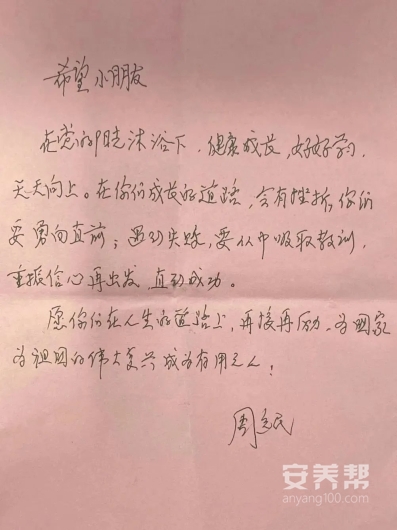 希望小朋友
在党的阳光沐浴下，健康成长，好好学习，
天天向上。在你们成长的道路，会有挫折，你们
要勇向直前；遇到失败，要从中吸取教训，
重振信心再出发，直到成功。
愿你们在人生的道路上，再接再厉，为国家
为祖国的伟大复兴成为有用之人！
周民
安养帮
anyang100.com